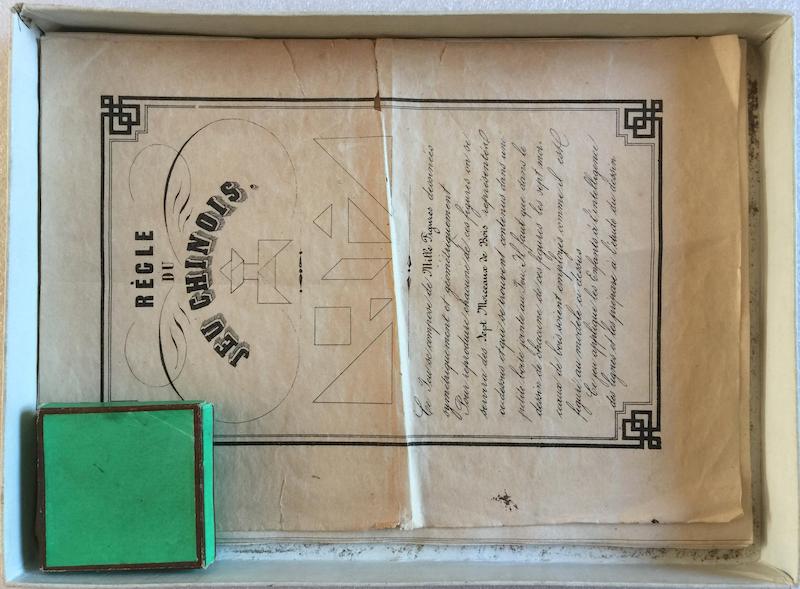 RÈGLE
DU
JEU CHINOIS.
Ce Jeu se compose de Mille Figures dessinées
symétriquement et géométriquement
Pour reproduire chacune de ces figures on se
servira des Sept Morceaux de Bois représentés
ci-dessus et qui se trouvent contenus dans une
petite boite jointe au Jeu. Il faut que dans le
dessin de chacune de ces figures les sept mor-
ceaux de bois soient employés comme il est
figuré au modèle ci-dessus
Ce jeu applique les Enfants à l'intelligence
des lignes et les prépare à l'étude du dessin.